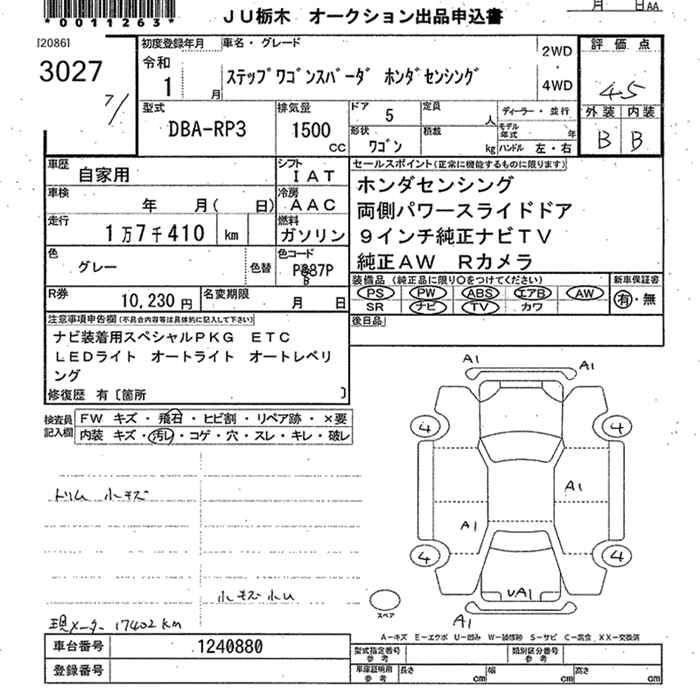 *0011263*
JU栃木 オークション出品申込書
月 日AA
[2086]
3027
7/
初度登録年月
令和
1 月
車名・グレード
ステップワゴンスパーダ ホンダセンシング
2WD
・
4WD
評価点
4.5
外装 内装
B B
型式
DBA-RP3
排気量
1500
CC
ドア
5
定員
人
形状
ワゴン
積載
kg
ディーラー・並行
モデル年式 年
ハンドル 左・右
車歴
自家用
シフト
IAT
車検
年 月( 日)
冷房
AAC
走行
1万7千410 km
燃料
ガソリン
色
グレー
色替
色コード
R券
10,230円
名変期限
月 日
セールスポイント(正常に機能するものに限ります)
ホンダセンシング
両側パワースライドドア
9インチ純正ナビTV
純正AW Rカメラ
装備品(純正品に限り○をつけてください)
PS PW ABS エアB AW
SR ナビ TV カワ
新車保証書
有・無
後日品
注意事項申告欄(不具合内容等は具体的に記入して下さい)
ナビ装着用スペシャルPKG ETC
LEDライト オートライト オートレベリ
ング
修復歴 有〔箇所 〕
検査員
記入欄
FW キズ・飛石・ヒビ割・リペア跡・×要
内装 キズ・汚レ・コゲ・穴・スレ・キレ・破レ
トリム 小キズ
小キズ小U
現メーター 17402km
A1
A1
4
4
A1
A1
4
4
UA1
A1
スペア
A-キズ E-エクボ U-凹み W-補修跡 S-サビ C-腐食 XX-交換済
車台番号
1240880
登録番号
型式指定番号
参考
類別区分番号
参考
車庫証明用
参考
長さ cm
幅 cm
高さ cm